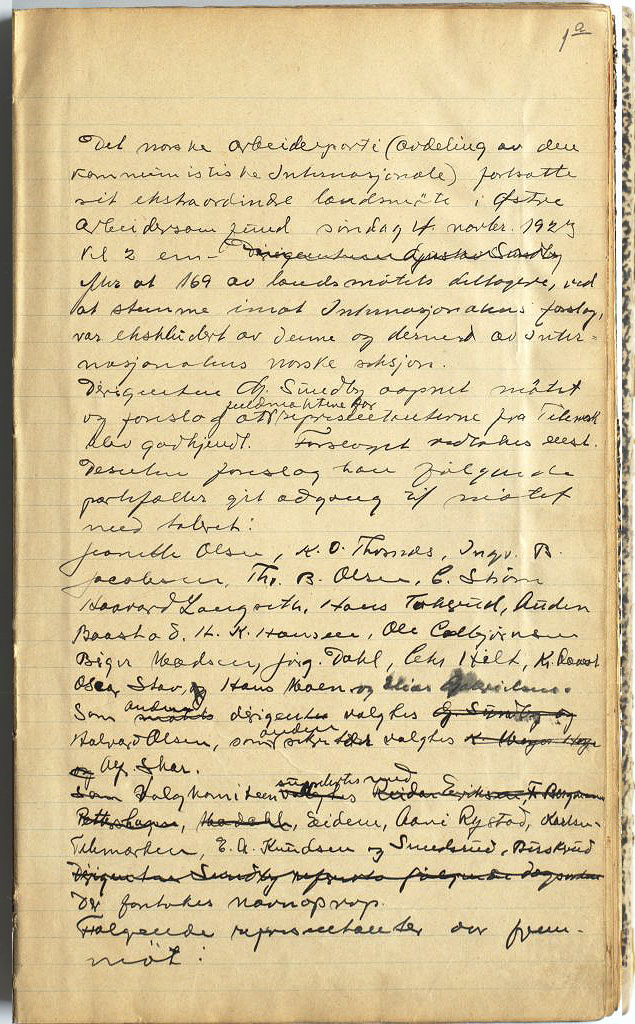 1a
Det norske Arbeiderparti (avdeling av den
kommunistiske Internasjonale) fortsatte
sit ekstraordinære landsmøte i Østre
Arbeidersamfund søndag 4 novbr. 1923
kl 2 em. Dirigenten Gustav Sundby
efter at 169 av landsmøtets deltagere, ved
at stemme imot Internasjonalens forslag,
var ekskludert av denne og dermed av Inter-
nasjonalens norske seksjon.
Dirigenten G. Sundby aapnet møtet
og foreslog at fuldmaktene for representanterne fra Telemark
blev godkjendt. Forslaget vedtokes eest.
Desuten foreslog han følgende
partifæller git adgang til møtet
med taleret:
Jeanette Olsen, K. O. Thornæs, Ingv. B.
Jacobsen, Th. B. Olsen, C. Strøm
Haavard Langseth, Hans Tokerud, Anden
Baastad, H. K. Hansen, Ole Colbjørnsen
Birger Madsen, Jørg. Dahl, Chr Hilt, K. Aamot
Oscar Stav, og Hans Moen og Elias
Som anden møtets dirigenter valgtes G Sundby og
Halvard Olsen, som anden sekretær valgtes K
og Alf Skar.
Som Valgkomiteen suppleres med valgtes Reidar Eriksen,
Eidem, Aani Rystad, Karlsen-
Telemarken, E. A. Knudsen og Smedsrud, Buskerud
Dirigenten Sundby refererte følgende dagsorden
Der foretokes navneoprop.
Følgende representanter var frem-
møt: